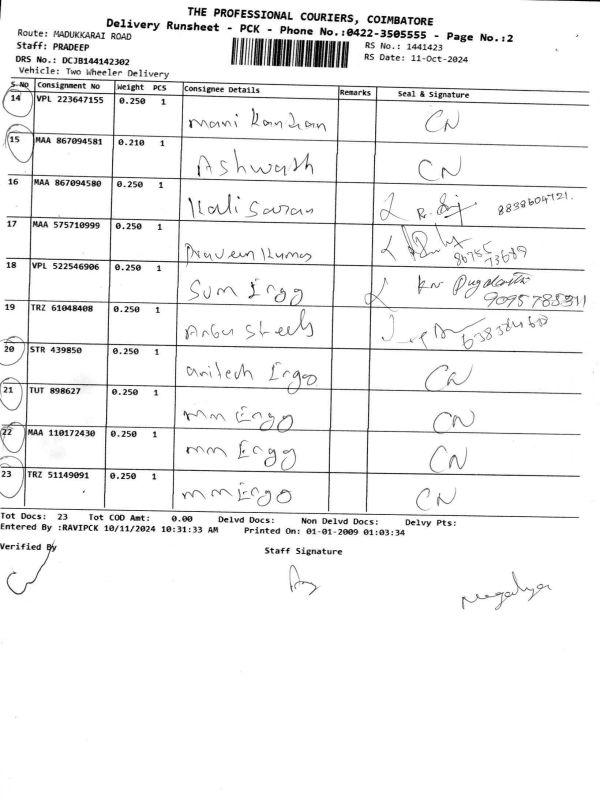 THE PROFESSIONAL COURIERS, COIMBATORE
Delivery Runsheet - PCK - Phone No.:0422-3505555 - Page No.:2
Route: MADUKKARAI ROAD
RS No.: 1441423
Staff: PRADEEP
RS Date: 11-Oct-2024
DRS No.: DCJB144142302
Vehicle: Two Wheeler Delivery
S No Consignment No Weight PCS Consignee Details Remarks Seal & Signature
14 VPL 223647155 0.250 1
mani kandan CN
15 MAA 867094581 0.210 1
Ashwath CN
16 MAA 867094580 0.250 1
Kali Saran 8838604721.
17 MAA 575710999 0.250 1
Praveen Kumar 86755
73689
18 VPL 522546906 0.250 1
Sum Ergo 9095785311
19 TRZ 61048408 0.250 1
Anbu Steels
20 STR 439850 0.250 1
anitech Ergo CN
21 TUT 898627 0.250 1
mm Ergo CN
22 MAA 110172430 0.250 1
mm Ergo CN
23 TRZ 51149091 0.250 1
mm Ergo CN
Tot Docs: 23 Tot COD Amt: 0.00 Delvd Docs: Non Delvd Docs: Delvy Pts:
Entered By :RAVIPCK 10/11/2024 10:31:33 AM Printed On: 01-01-2009 01:03:34
Verified By Staff Signature